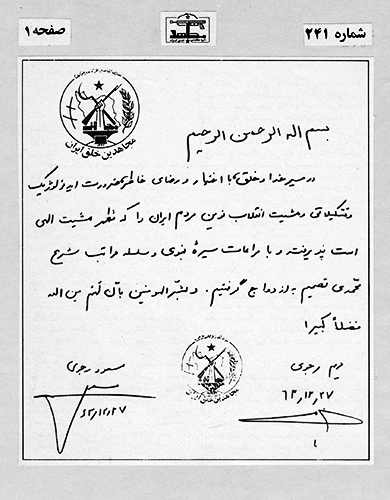 شماره ۲۴۱
صفحه ۱
مجاهدین خلق ایران
بسم اله الرحمن الرحیم
در مسیر خدا و خلق، با اختیار و رضای خاطر بضرورت ایدئولوژیک
و تشکیلاتی و مشیت انقلاب نوین مردم ایران را که مظهر مشیت الهی
است پذیرفته و با مراعات سیرهٔ نبوی و سلسله مراتب شرع
محمدی تصمیم به ازدواج گرفتیم. و بشّر المومنین بأنّ لهم من الله
فضلاً کبیرا
مریم رجوی
۶۳٫۱۲٫۲۷
مسعود رجوی
۶۳٫۱۲٫۲۷
مجاهدین خلق ایران